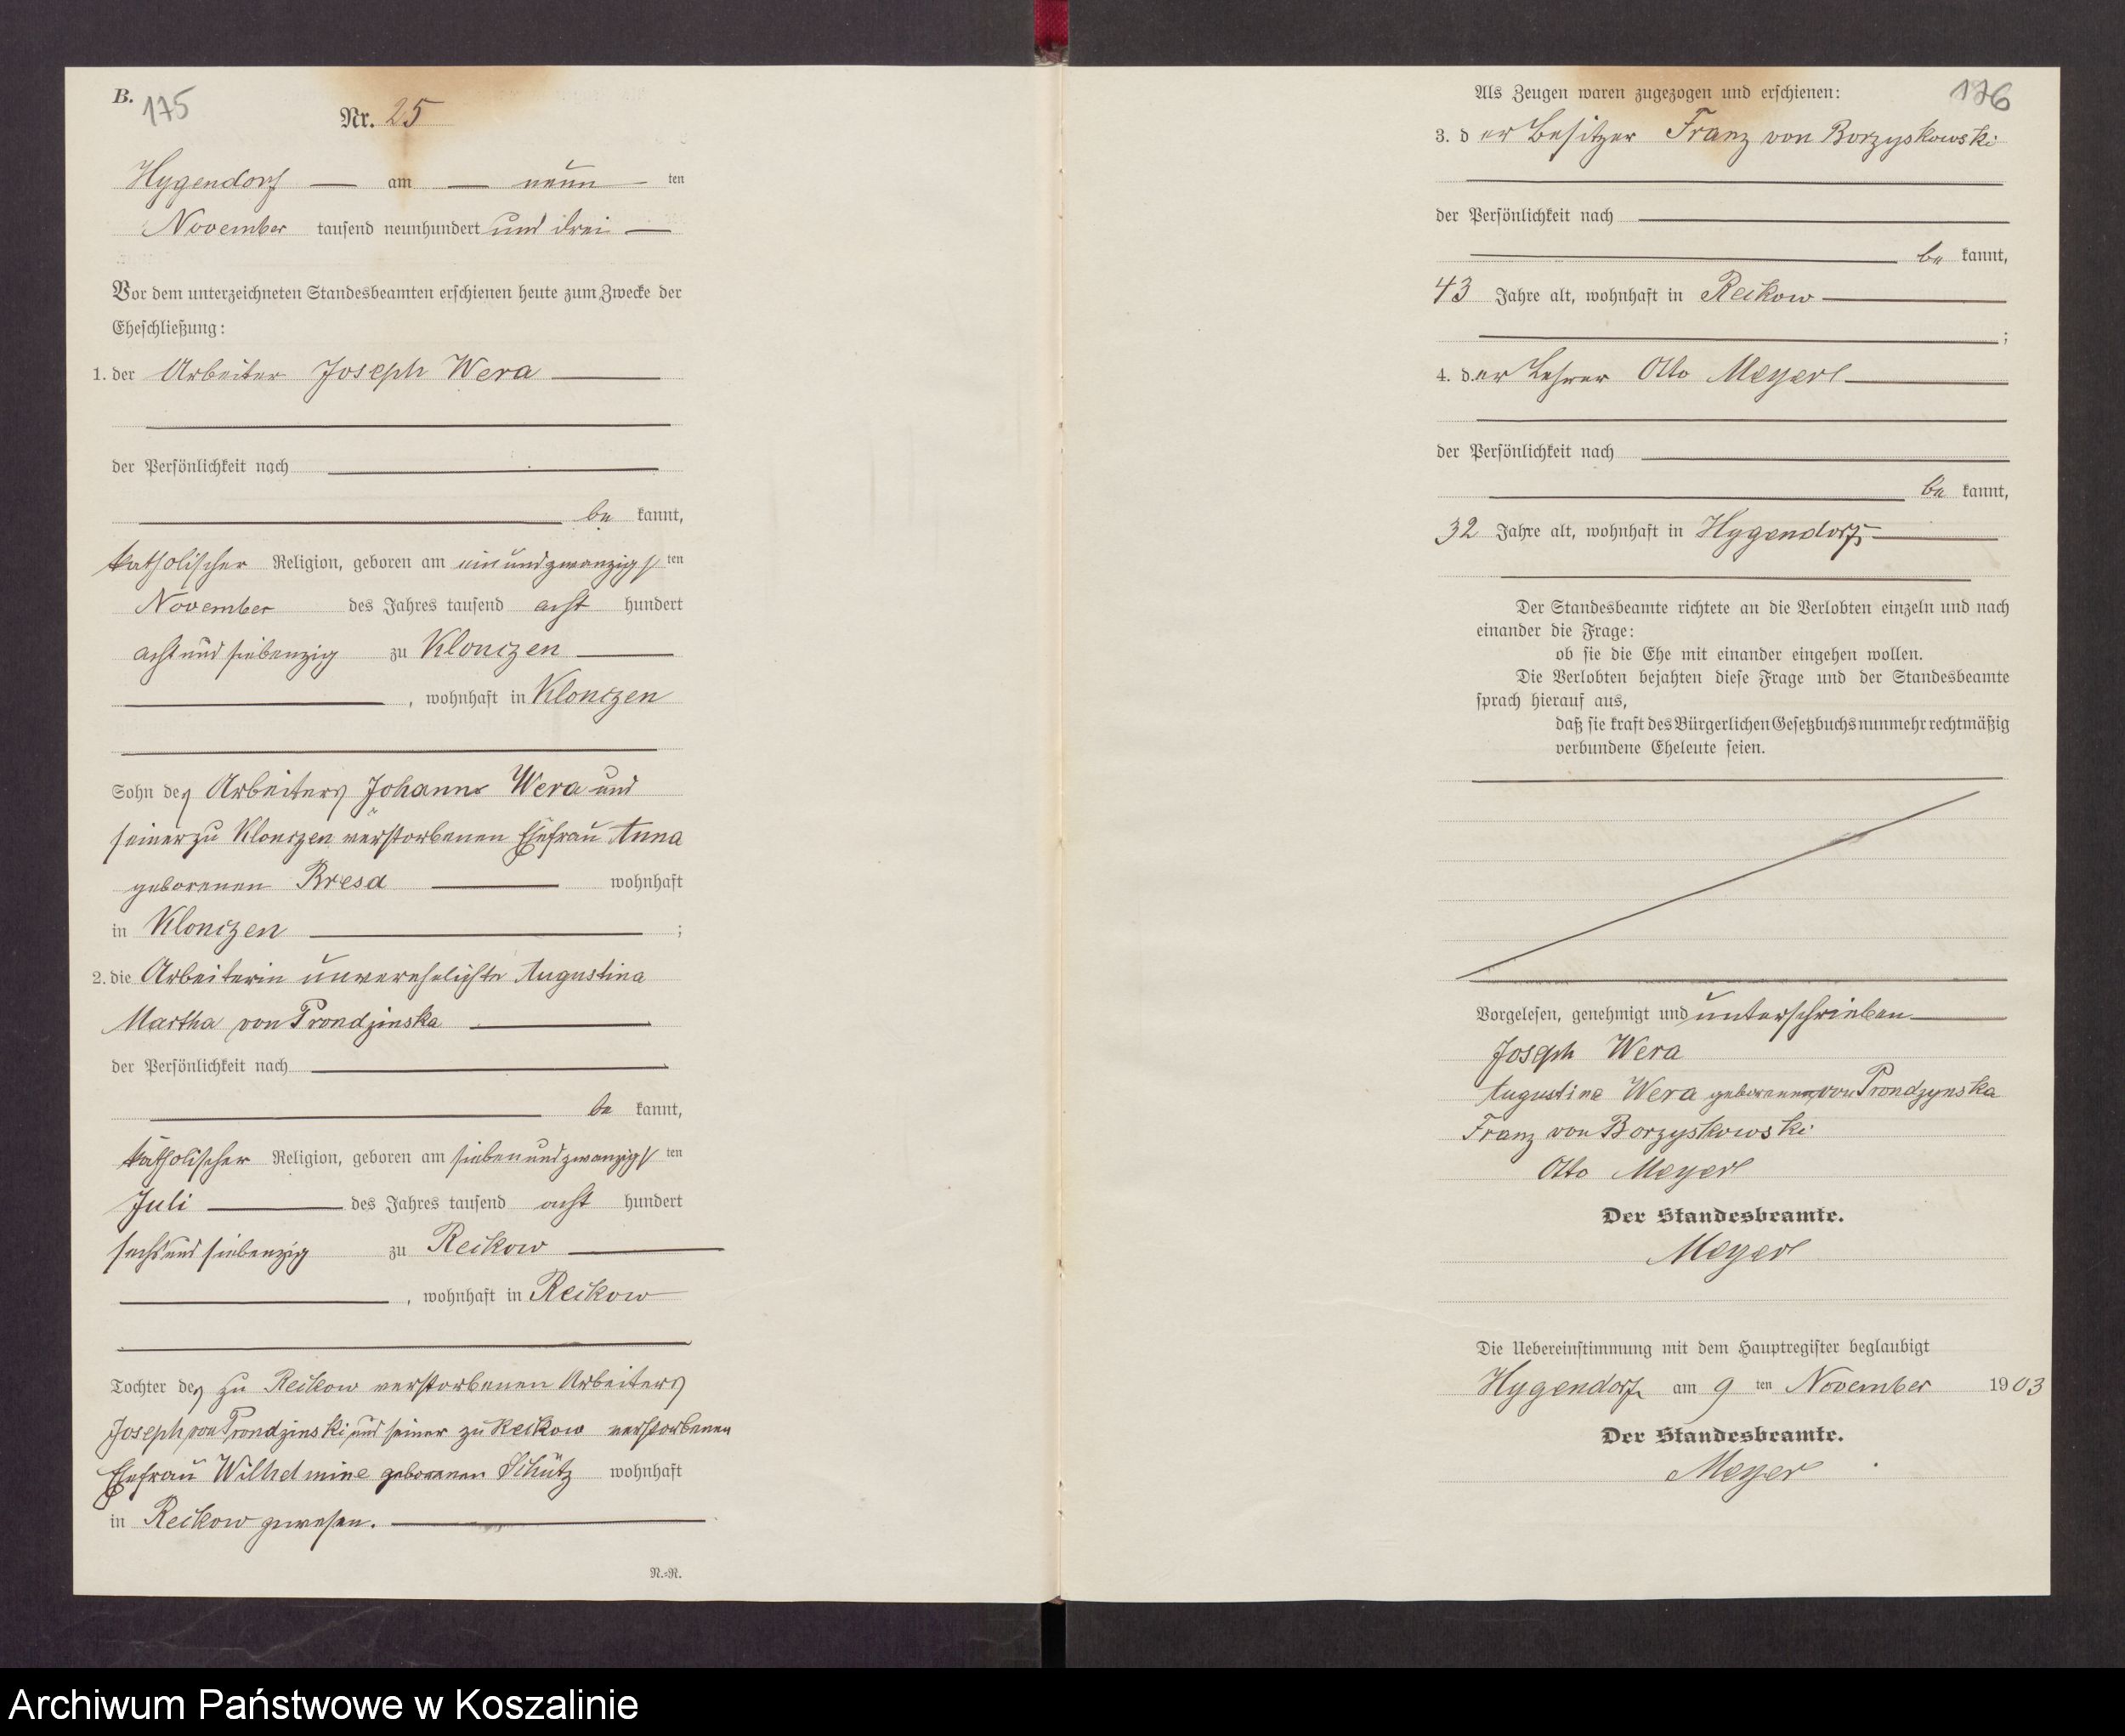 B.
175
Nr. 25
Hygendorf am neun ten
November tausend neunhundert und drei
Vor dem unterzeichneten Standesbeamten erschienen heute zum Zwecke der
Eheschließung:
1. der Arbeiter Joseph Wera
der Persönlichkeit nach
be kannt,
katholischer Religion, geboren am einundzwanzigsten
November des Jahres tausend acht hundert
achtundsiebenzig zu Klonczen
, wohnhaft in Klonczen
Sohn des Arbeiters Johann Wera und
seiner zu Klonczen verstorbenen Ehefrau Anna
geborenen Bresa wohnhaft
in Klonczen ;
2. die Arbeiterin unverehelichte Augustina
Martha von Prondzinska
der Persönlichkeit nach
be kannt,
katholischer Religion, geboren am siebenundzwanzigsten
Juli des Jahres tausend acht hundert
sechsundsiebenzig zu Reckow
, wohnhaft in Reckow
Tochter des zu Reckow verstorbenen Arbeiters
Joseph von Prondzinski und seiner zu Reckow verstorbenen
Ehefrau Wilhelmine geborenen Schütz wohnhaft
in Reckow gewesen.
N.-R.
176
Als Zeugen waren zugezogen und erschienen:
3. der Besitzer Franz von Borzyskowski
der Persönlichkeit nach
be kannt,
43 Jahre alt, wohnhaft in Reckow
;
4. der Lehrer Otto Meyer
der Persönlichkeit nach
be kannt,
32 Jahre alt, wohnhaft in Hygendorf
Der Standesbeamte richtete an die Verlobten einzeln und nach
einander die Frage:
ob sie die Ehe mit einander eingehen wollen.
Die Verlobten bejahten diese Frage und der Standesbeamte
sprach hierauf aus,
daß sie kraft des Bürgerlichen Gesetzbuchs nunmehr rechtmäßig
verbundene Eheleute seien.
Vorgelesen, genehmigt und unterschrieben
Joseph Wera
Augustine Wera geborenen von Prondzynska
Franz von Borzyskowski
Otto Meyer
Der Standesbeamte.
Meyer
Die Uebereinstimmung mit dem Hauptregister beglaubigt
Hygendorf am 9 ten November 1903
Der Standesbeamte.
Meyer
Archiwum Państwowe w Koszalinie